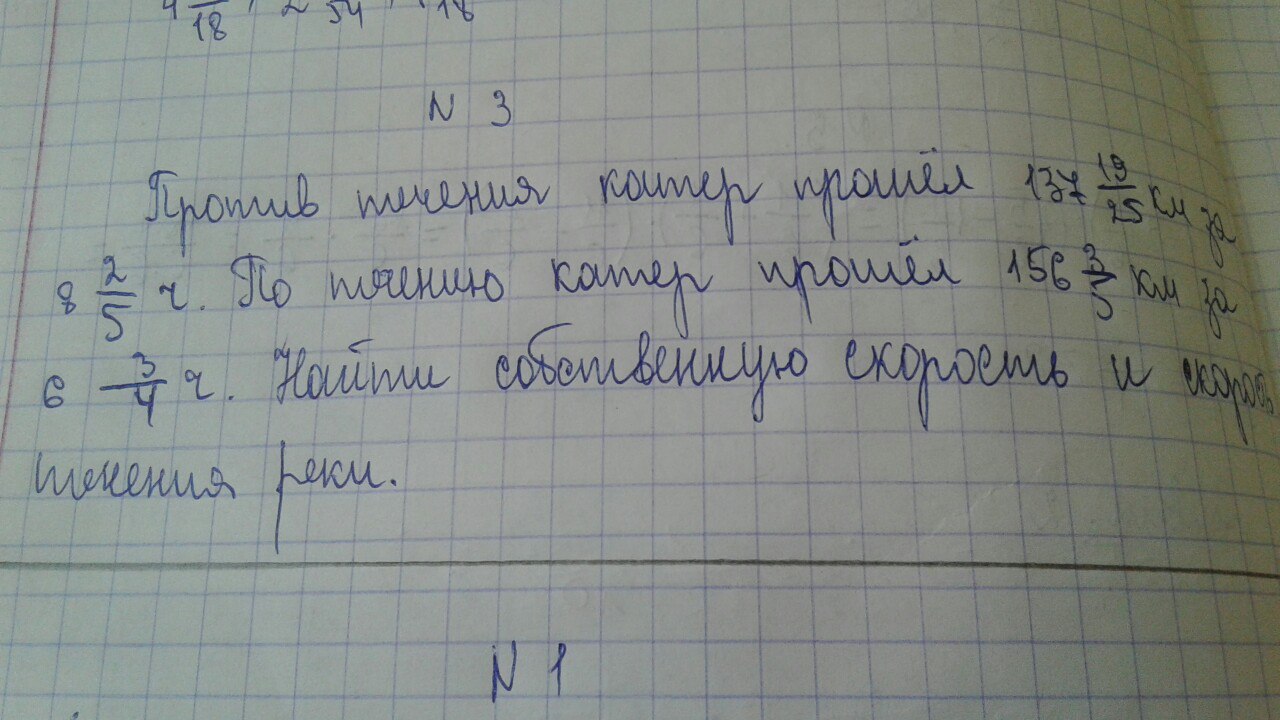 4 /18, 2 /54, /18
N 3
Против течения катер прошёл 137 19/25 км за
8 2/5 ч. По течению катер прошёл 156 3/5 км за
6 3/4 ч. Найти собственную скорость и скорость
течения реки.
N 1